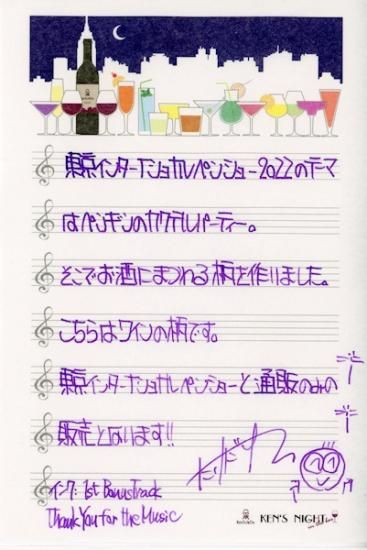 東京インターナショナルペンショー2022のテーマ
はペンギンのカクテルパーティー。
そこでお酒にまつわる柄を作りました。
こちらはワインの柄です。
東京インターナショナルペンショーと通販のみの
販売となります!!
インク: 1st Bonus Track
Thank You for the Music
KEN'S NIGHT